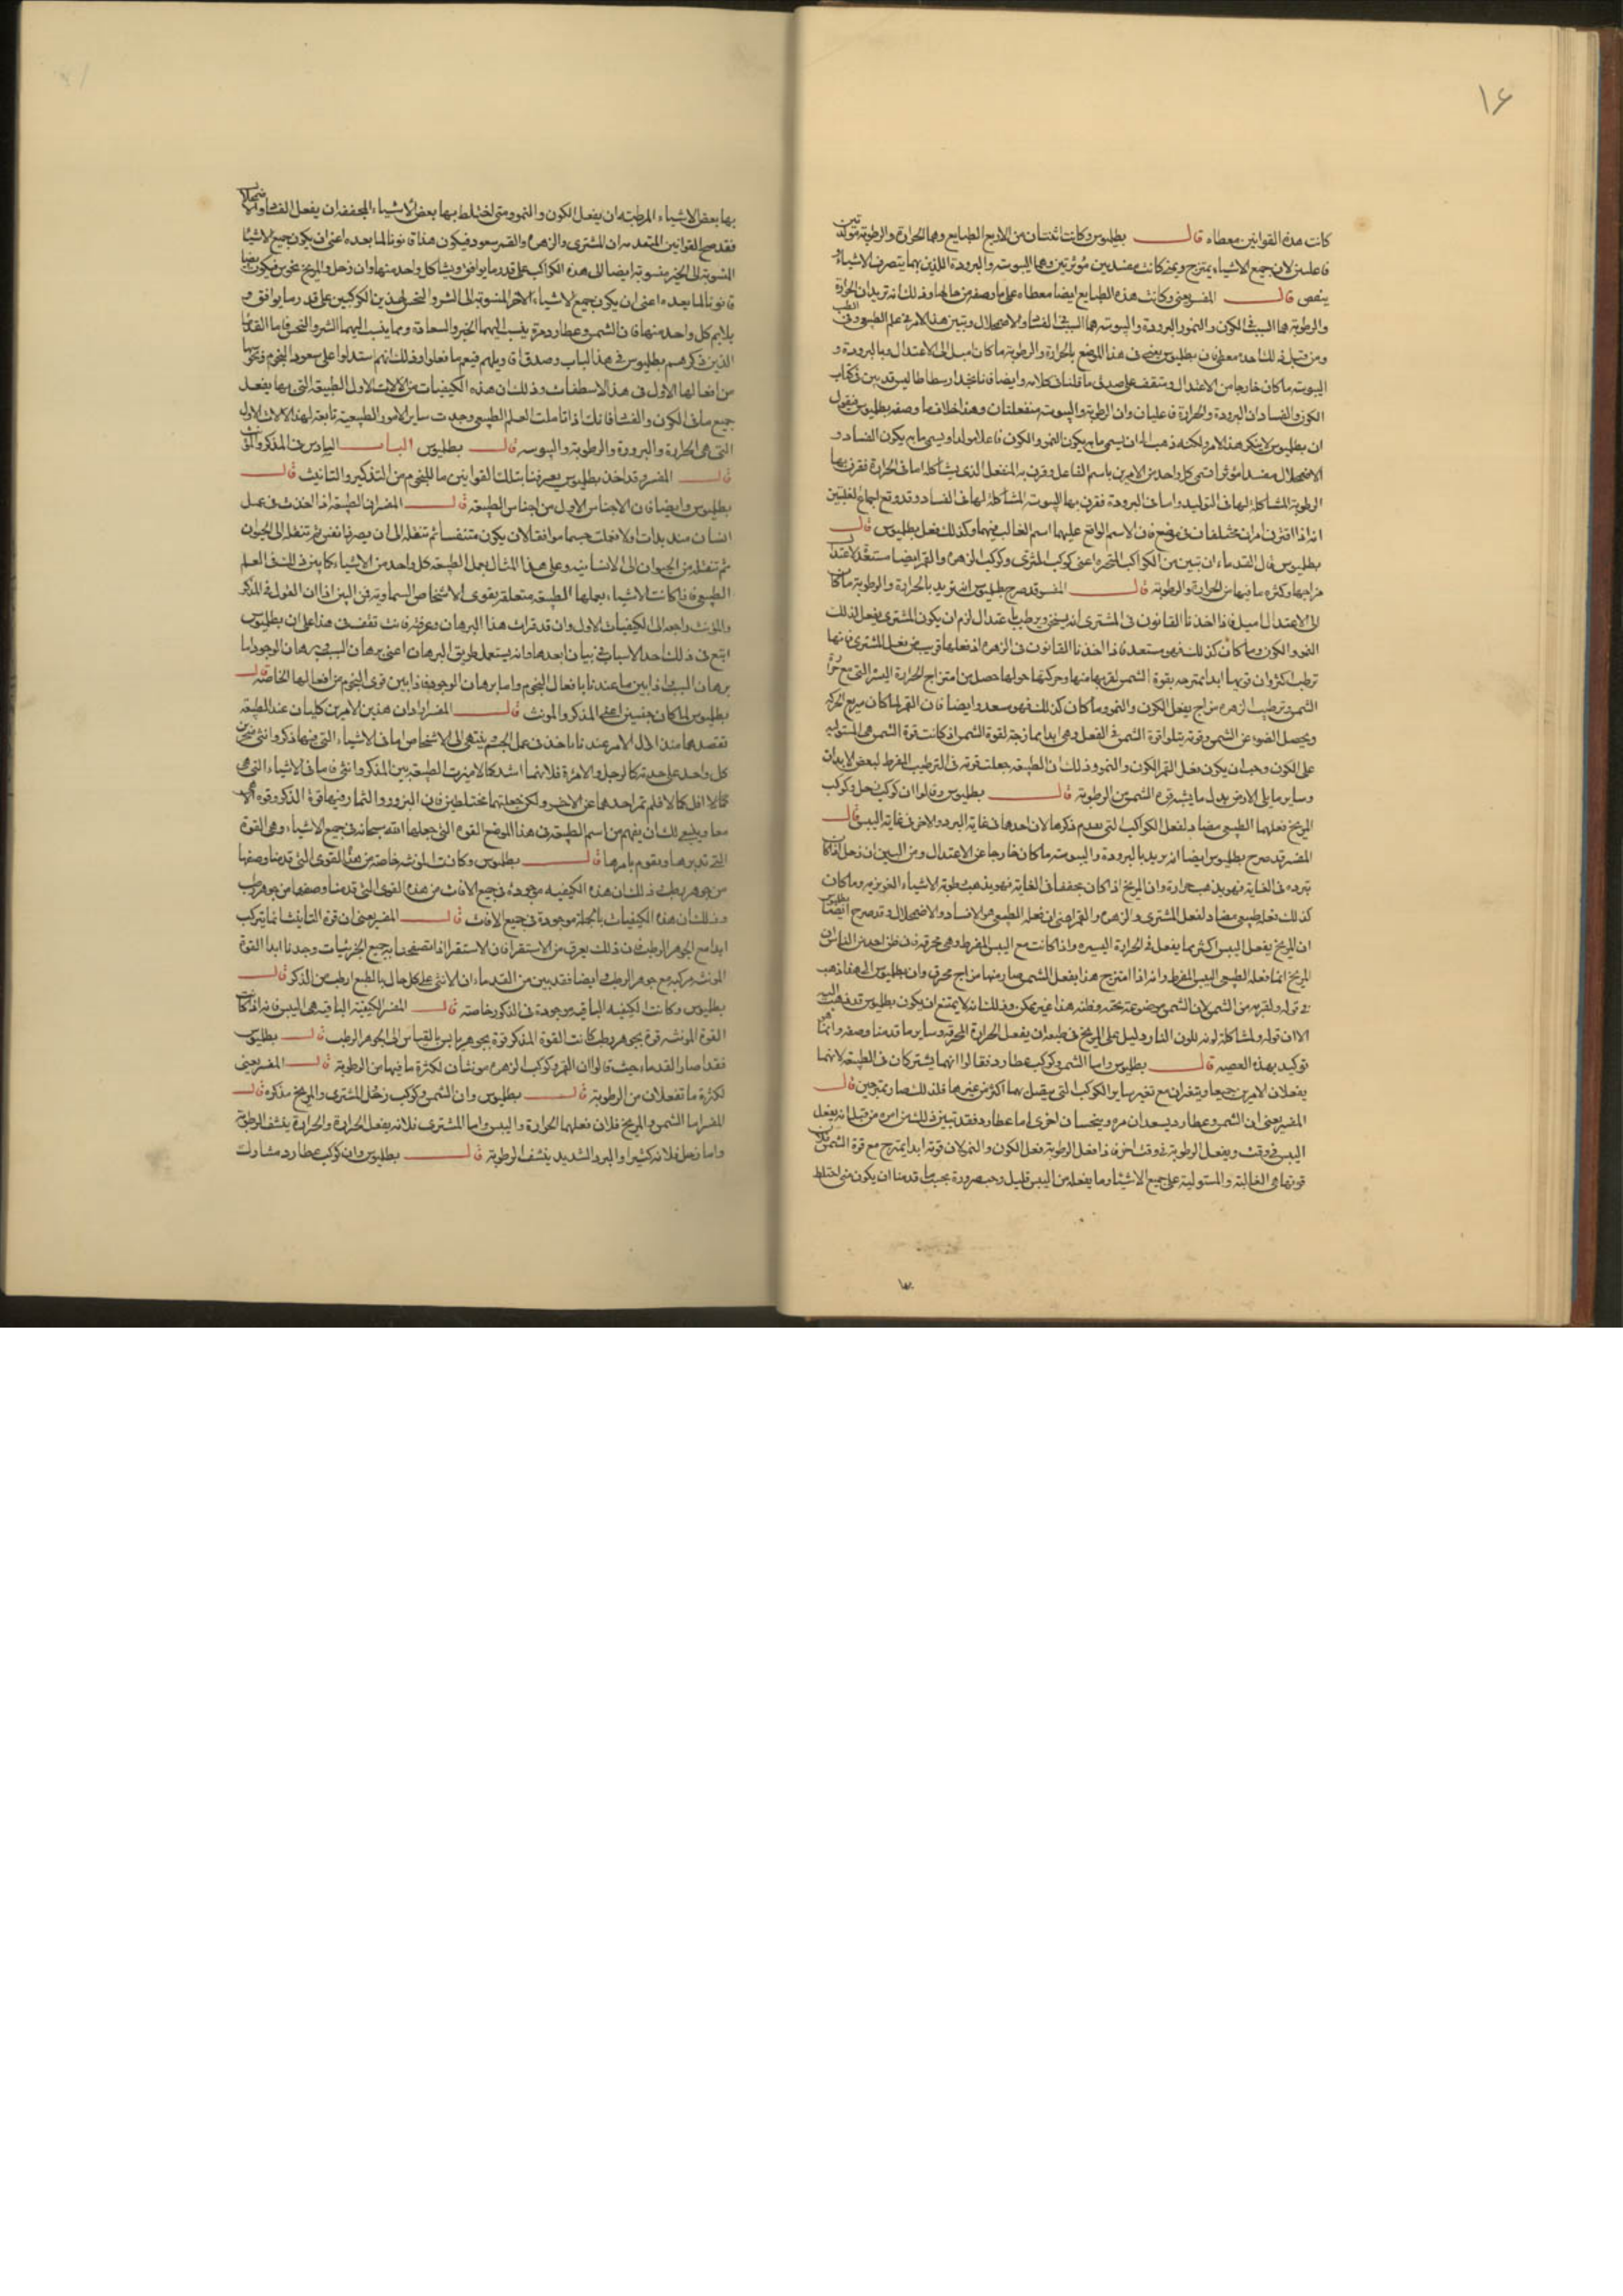 ١٦
كانت هذه القوانين معطاه قال بطليوس وكانت اثنتان من الاربع الطبايع وهما الحرارة والرطوبة مولدتين
فاعلتين لان جميع الاشياء بهما يمتزج وكانت مفسدتين مؤثرتين وهما اليبوسة والبرودة اللذين بهما يتصرف الاشياء
ينقص قال المفسر يعنى وكانت هذه الطبايع ايضا معطاه على ما وصفه من حالها وذلك انه تريد ان الحرارة
والرطوبة هما السبب فى الكون والنمو والبرودة واليبوسة هما السبب فى الفساد والاضمحلال وتبين هذا الامر فى علم الطب وفى
ومن قبل ذلك احد معطى فان بطليوس يعنى فى هذا الموضع بالحرارة والرطوبة ما كان اميل الى الاعتدال وبالبرودة و
اليبوسة ما كان خارجا من الاعتدال وستقف على صدق ما قلنا من كلامه وايضا فانا نجد ارسطاطاليس قد بين فى كتاب
الكون والفساد ان البرودة والحرارة فاعليان وان الرطوبة واليبوسة منفعلتان وهذا خلاف ما وصفه بطليوس فنقول
ان بطليوس لا ينكر هذا الامر ولكنه ذهب الى ان يسمى ما به يكون النمو والكون فاعلا مولدا ويسمى ما به يكون الفساد و
الاضمحلال مفسدا مؤثرا فسمى كل واحد من الامرين باسم الفاعل وقرن به المنفعل الذى يشاكله اما فى الحرارة فقرن بها
الرطوبة المشاكلة لها فى التوليد واما فى البرودة فقرن بها اليبوسة المشاكلة لها فى الفساد وقد وقع
انه اذا اقترن امران مختلفان فى موضع فان الاسم الواقع عليهما اسم الغالب فيهما وكذلك فعل بطليوس قال
بطليوس قال القدماء ان تبين من الكواكب المتحيرة اعنى كوكب المشترى وكوكب الزهرة والقمر ايضا مستعدة لاعتدال
مزاجها وكثرة ما فيها من الحرارة والرطوبة قال المفسر قد صرح بطليوس انه يريد بالحرارة والرطوبة ما كان
الى الاعتدال اميل فاذا اخذنا القانون فى المشترى انه يسخن ويرطب باعتدال لزم ان يكون المشترى يفعل لذلك
النمو والكون وما كان كذلك فهو مسعد فاذا اخذنا القانون فى الزهرة اذ فعلها قريب من فعل المشترى فانها
ترطب اكثر وان قوتها ابدا ممتزجه بقوة الشمس لقربها منها وحركتها حولها حصل من امتزاج الحرارة اليسيرة التى مع حرارة
الشمس وترطيب الزهرة مزاج يفعل الكون والنمو وما كان كذلك فهو سعد وايضا فان القمر لما كان سريع الحركة
ويحصل الضوء عن الشمس وقوته يتلو قوة الشمس فى الفعل وهى ابدا ممازجة لقوة الشمس اذ كانت قوة الشمس هى المستولية
على الكون وجب ان يكون يفعل القمر الكون والنمو وذلك ان الطبيعة جعلت قوته فى الترطيب المفرط لبعض الابدان
وساير ما يلى الارض بدل ما ينشفه قوة الشمس من الرطوبة قال بطليوس وقالوا ان كوكب زحل وكوكب
المريخ فعلهما الطبيعى مضاد لفعل الكواكب التى تقدم ذكرها لان احدها فى غاية البرد والاخر فى غاية اليبس قال
المفسر قد صرح بطليوس ايضا انه يريد بالبرودة واليبوسة ما كان خارجا عن الاعتدال ومن البين ان زحل اذا كان
تبرده فى الغاية فهو يذهب بحرارة وان المريخ اذا كان يجففها فى الغاية فهو يذهب برطوبة الاشياء الغريزية وما كان
كذلك فعله طبيعى مضاد لفعل المشترى والزهرة والقمر اعنى ان فعله الطبيعى هو الافساد والاضمحلال وقد صرح بطليوس ايضا
ان المريخ يفعل اليبس اكثر مما يفعل فى الحرارة اليسيرة واذا كانت مع اليبس المفرط وهى محرقة فان ظن احد من الناس ان
المريخ انما فعله الطبيعى اليبس المفرط وانه اذا امتزج هذا بفعل الشمس صار منهما مزاج محرق وان بطليوس الى هذا ذهب
فى قوله ولقربه من الشمس لان الشمس موضوعة تحته وظنه هذا غير ممكن وذلك انه لا يمتنع ان يكون بطليوس قد ذهب اليه
الا ان قوله ولمشاكلة لونه للون النار دليل على المريخ فى طبعه ان يفعل الحرارة المحرقة وساير ما قدمنا وصفه وانما هو
توكيد بهذه القصية قال بطليوس واما الشمس وكوكب عطارد فقالوا انهما يشتركان فى الطبيعة لانهما
يفعلان الامرين جميعا ويتغيران مع تغير ساير الكواكب التى يتصل بهما اكثر من غيرهما فلذلك صار ممتزجين قال
المفسر يعنى ان الشمس وعطارد يسعدان مرة وينحسان اخرى اما عطارد فقد تبين ذلك من امره من قبل انه يفعل
اليبس فى وقت ويفعل الرطوبة فى وقت اخر فاذا فعل الرطوبة فعل الكون والنمو لان قوته ابدا يمتزج مع قوة الشمس لان
قوتها هى الغالبة والمستولية على جميع الاشياء وما يفعله من اليبس قليل وجب ضرورة بحسب ما قدمنا ان يكون متى اختلط
بها
بها بعض الاشياء المرطبة ان يفعل الكون والنمو ومتى اختلط بها بعض الاشياء المجففة ان يفعل الفساد والاضمحلال
فقد صح القوانين المتقدمة ان المشترى والزهرة والقمر سعود فيكون هذا قانونا لما بعده اعنى ان يكون جميع الاشياء
المنسوبة الى الخير منسوبة ايضا الى هذه الكواكب على قدر ما يوافق ويشاكل واحد منها وان زحل والمريخ نحوس فيكون ايضا
قانونا لما بعده اعنى ان يكون جميع الاشياء الاخر المنسوبة الى الشر والنحس لهذين الكوكبين على قدر ما يوافق و
يلايم كل واحد منهما فان الشمس وعطارد مرة ينسب اليهما الخير والسعادة ومرة ينسب اليهما الشر والنحس فاما القدماء
الذين ذكرهم بطليوس فى هذا الباب وصدق اقاويلهم فنعم ما فعلوا وذلك انهم استدلوا على سعود النجوم ونحوسها
من افعالها الاول فى هذا الاسطقسات وذلك ان هذه الكيفيات من الالات الاول الطبيعة التى بها يفعل
جميع ما فى الكون والفساد فانك اذا تأملت العلم الطبيعى وجدت ساير الامور الطبيعية تابعة لهذه الالات الاول
التى هى الحرارة والبرودة والرطوبة واليبوسه قال بطليوس الباب السادس فى المذكر والمؤنث
قال المفسر وقد اخذ بطليوس يعرفنا بتلك القوانين ما للنجوم من التذكير والتانيث قال
بطليوس وايضا فان الاجناس الاول من اجناس الطبيعة قال المفسر ان الطبيعة اذا اخذت فى عمل
انسان منذ بدات اولا فعلت جسما موافقا لان يكون متنفسا ثم تنقله الى ان يصير ذا نفس ثم تنقله الى الحيوان
ثم تنقله من الحيوان الى الانسانية وعلى هذا المثال يعمل الطبيعة كل واحد من الاشياء كما بين ذلك فى العلم
الطبيعى فاذا كانت الاشياء يعملها الطبيعة متعلقة بقوى الاشخاص السماوية فمن البين اذا ان القول فى المذكر
والمؤنث راجعه الى الكيفيات الاول وان قد قرات هذا البرهان وعرفته فانت تقف من هذا على ان بطليوس
اتبع فى ذلك احد الاسباب فى بيان ابعدها وانه يستعمل طريق البرهان اعنى برهان السبب وبرهان الوجود اما
برهان السبب اذا بين ما عندنا بافعال النجوم واما برهان الوجود فاذا بين قوى النجوم من افعالها الخاصة قال
بطليوس لما كان جنسين اعنى المذكر والمونث قال المفسر اراد ان هذين الامرين كليان عند الطبيعة
تقصدهما منذ اول الامر عندنا ياخذ فى عمل الجسم ينتهى الى الاشخاص اما فى الاشياء التى فيها ذكر وانثى
كل واحد على حدته كالرجل والامرأة فلانهما اشد كمالا ميزت الطبيعة بين المذكر وانثى فاما فى الاشياء التى هى
كمالا اقل كمالا فلم تميز احدهما عن الاخر ولكن جعلتهما مختلطين فان البزور والثمار وفيها قوة الذكر وقوة الانثى
معا وينبغى لك ان يفهم من اسم الطبيعة فى هذا الموضع القوة التى جعلها الله سبحانه فى جميع الاشياء وهى القوة
التى تدبرها ويقوم بامرها قال بطليوس وكانت المونثه خاصة من هذه القوى التى قدمنا وصفها
من جوهر رطب ذلك ان هذه الكيفيه موجوده فى جميع الاناث من هذه القوى التى قدمنا وصفها من جوهر رطب
وذلك ان هذه الكيفيات بالجملة موجودة فى جميع الاناث قال المفسر يعنى ان قوة التانيث انما يتركب
ابدا مع الجوهر الرطب فان ذلك يعرف من الاستقراء فان الاستقرا اذا تصفحنا به جميع الجزئيات وجدنا ابدا القوة
المونثه مركبة مع جوهر الرطب وايضا فقد بين من القدماء ان الانثى على كل حال بالطبع ارطب من الذكر قال
بطليوس وكانت الكيفيه الباقيه موجودة فى الذكور خاصة قال المفسر الكيفية الباقيه هى اليبس فانه اذا كانت
القوة المونثه قوة بجوهر رطب كانت القوة المذكر قوة بجوهر يابس بالقياس الى الجوهر الرطب قال بطليوس
فقد اصار القدماء حيث قالوا ان القمر وكوكب الزهرة مونثان لكثرة ما فيهما من الرطوبة قال المفسر يعنى
لكثرة ما تفعلان من الرطوبة قال بطليوس وان الشمس وكوكب زحل المشترى والمريخ مذكره قال
المفسر اما الشمس والمريخ فلان فعلهما الحرارة واليبس واما المشترى فلانه يفعل الحرارة والحرارة ينشف الرطوبة
واما زحل فلانه كثير والبرد الشديد ينشف الرطوبة قال بطليوس وان كوكب عطارد مشارك